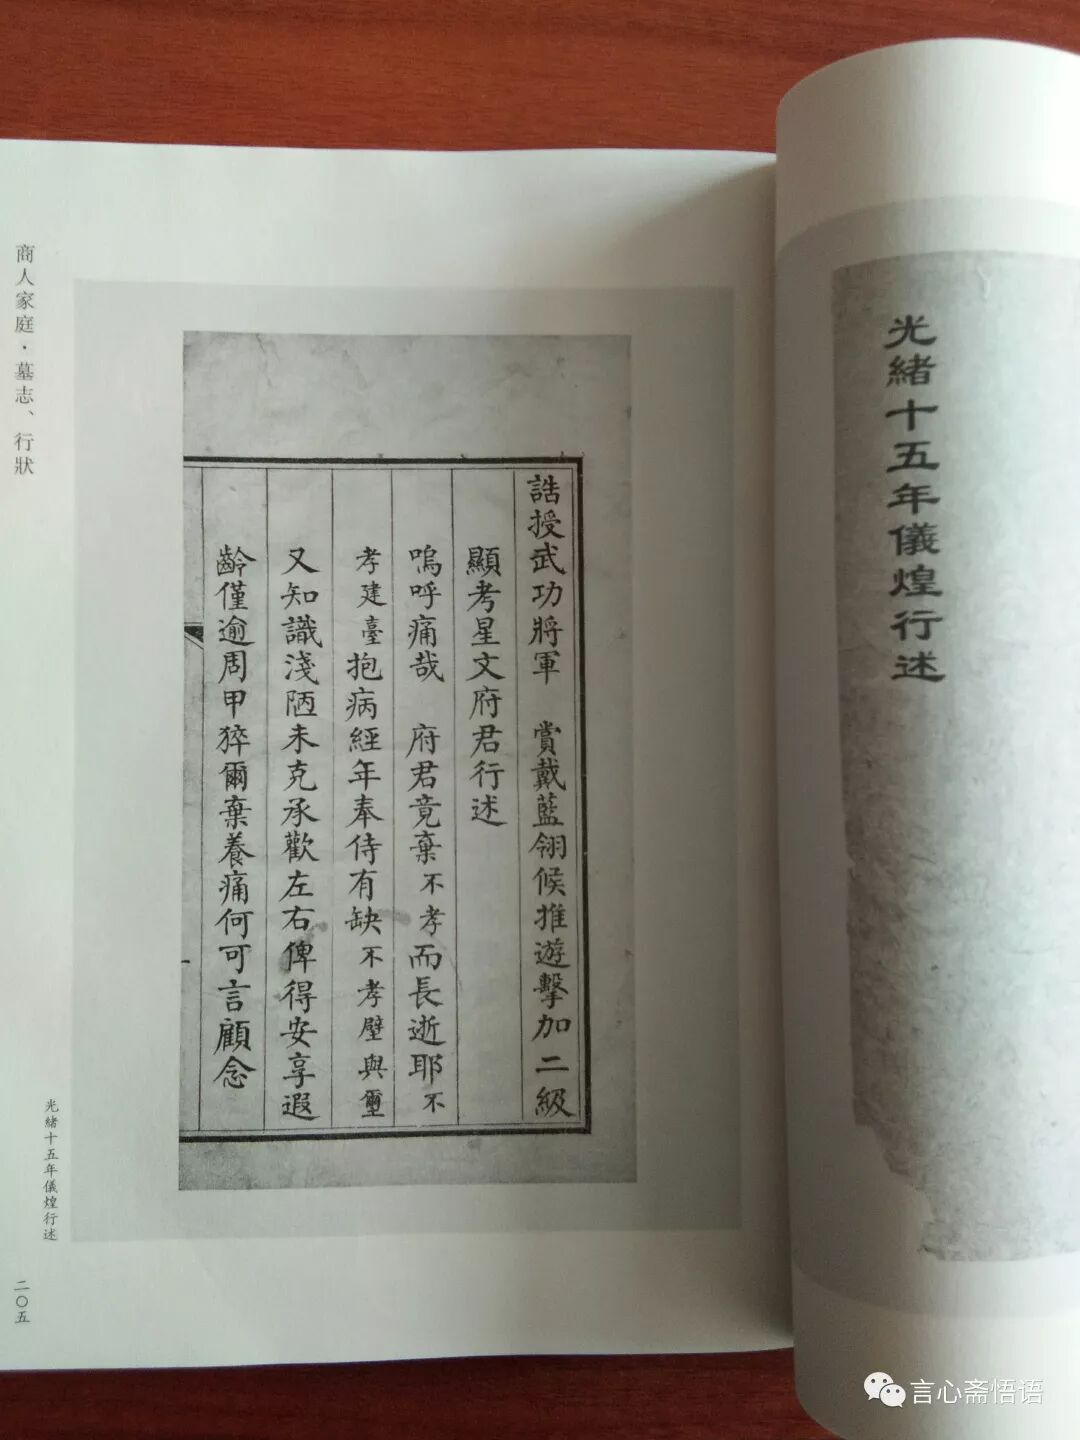 光緒十五年儀煌行述
誥授武功將軍　賞戴藍翎候推遊擊加二級
顯考星文府君行述
嗚呼痛哉　府君竟棄不孝而長逝耶不
孝建臺抱病經年奉侍有缺不孝壁與璽
又知識淺陋未克承歡左右俾得安享遐
齡僅逾周甲猝爾棄養痛何可言顧念
商人家庭·墓志、行狀
光緒十五年儀煌行述
二〇五
言心斋悟语